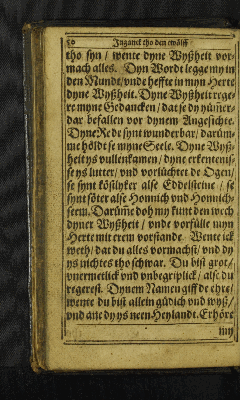 50 Inganck tho den twölff
tho syn / wente dyne Wyßheit vor-
mach alles. Dyn Wordt legge my in
den Mundt / vnde heffte in myn Herte
dyne Wyßheit. Dyne Wyßheit rege-
re myne Gedancken / dat se dy nümer-
dar befallen vor dynem Angesichte.
Dyne Rede synt wunderbar / darüm-
me höldt se myne Seele. Dyne Wyß-
heit ys vullenkamen / dyne erkentenis-
se ys lutter / vnd vorlüchtet de Ogen /
se synt köstlyker alse Eddelsteine / se
synt söter alse Honnich vnd Honnich-
seem. Darüme doh my kunt den wech
dyner Wyßheit / vnde vorfülle myn
Herte mit erem vorstande. Wente ick
weth / dat du alles vormachst / vnd dy
ys nichtes tho schwar. Du bist grot /
vnermetlick vnd vnbegriplick / alse du
regerest. Dynem Namen giff de ehre /
wente du bist allein güdich vnd wyß /
vnd ane dy ys neen Heylandt. Erhöre
my